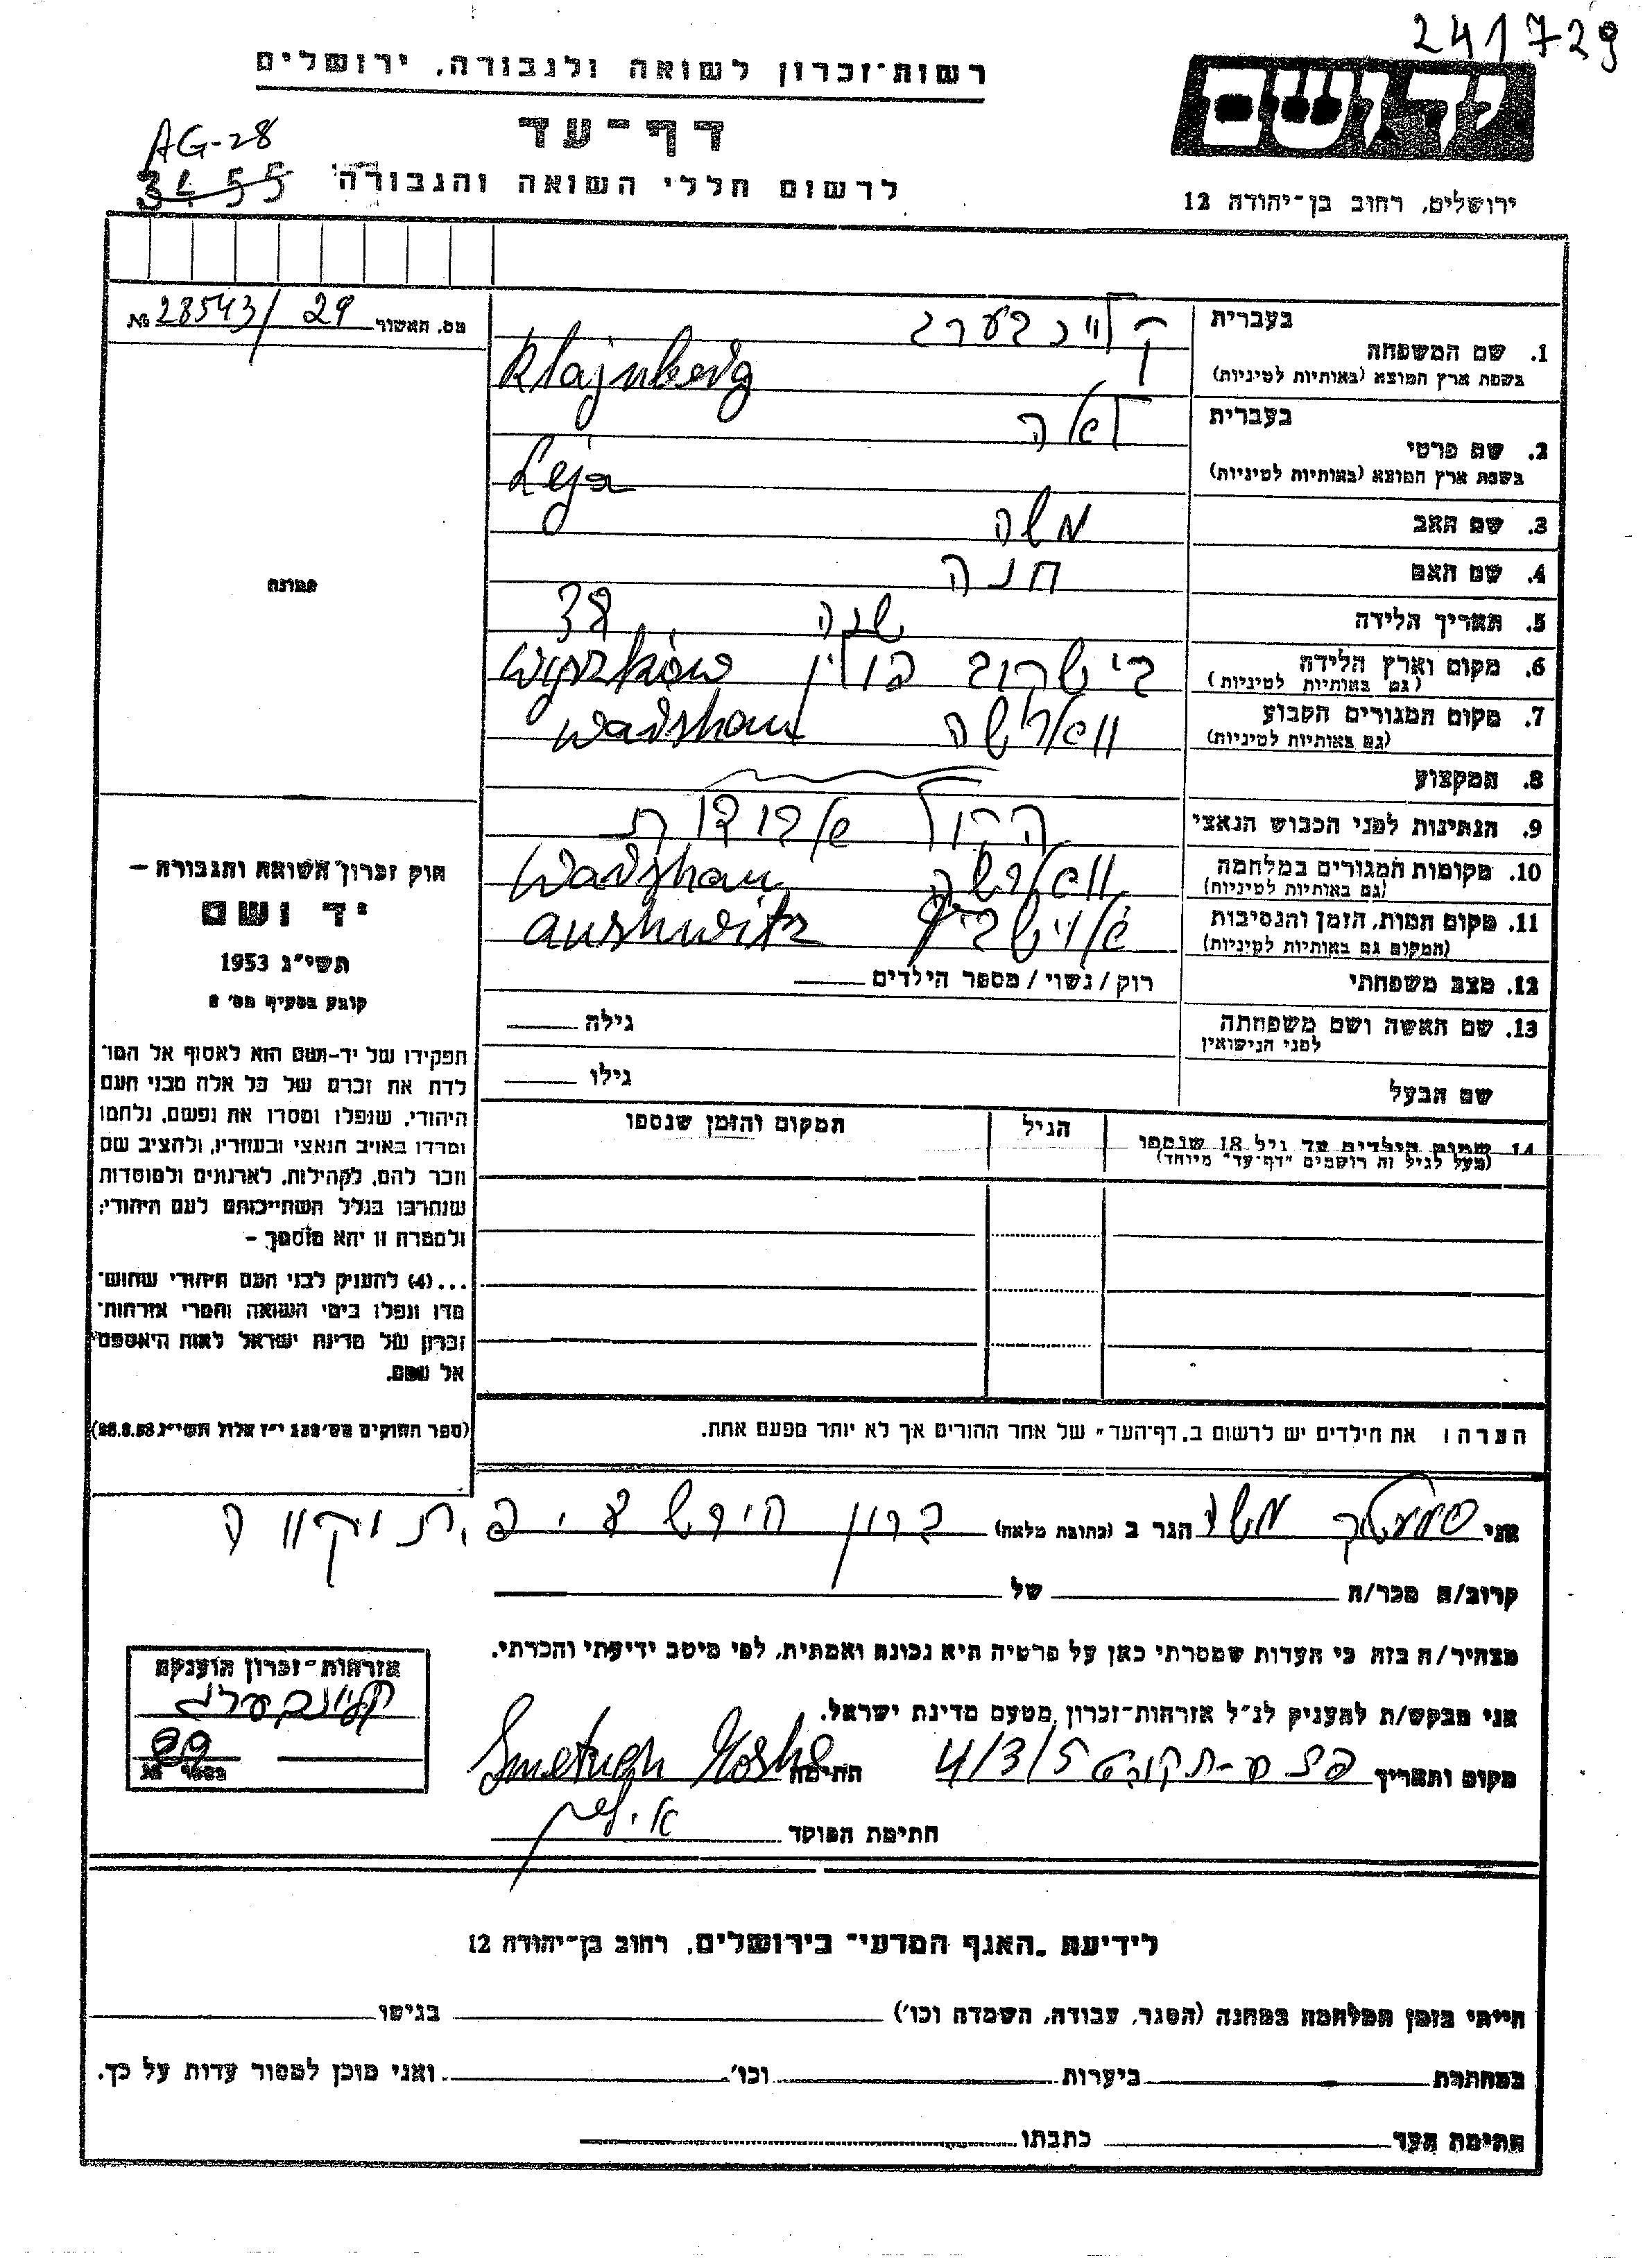 241729
רשות־זכרון לשואה ולגבורה, ירושלים
יד ושם
דף־עד
AG-28
3455
לרשום חללי השואה והגבורה
ירושלים, רחוב בן־יהודה 12
מס. האשור 28543/29 №
בעברית קליינבערג
1. שם המשפחה
בשפת ארץ המוצא (באותיות לטיניות) Klajnberg
בעברית לאה
2. שם פרטי
בשפת ארץ המוצא (באותיות לטיניות) Leja
3. שם האב משה
4. שם האם חנה
תמונה
5. תאריך הלידה שנה 38
6. מקום וארץ הלידה וישקוב פולין Wyszków
(גם באותיות לטיניות)
7. מקום המגורים הקבוע ווארשה Warshau
(גם באותיות לטיניות)
8. המקצוע
9. הנתינות לפני הכבוש הנאצי
10. מקומות המגורים במלחמה ווארשה Warshau
(גם באותיות לטיניות)
11. מקום המות, הזמן והנסיבות אוישביץ Aushwitz
(המקום גם באותיות לטיניות)
12. מצב משפחתי רוק / נשוי / מספר הילדים
13. שם האשה ושם משפחתה גילה
לפני הנישואין
שם הבעל גילו
14. שמות הילדים עד גיל 18 שנספו הגיל המקום והזמן שנספו
(מעל לגיל זה רושמים "דף־עד" מיוחד)
חוק זכרון השואה והגבורה –
יד ושם
תשי"ג 1953
קובע בסעיף מס' 2
תפקידו של יד-ושם הוא לאסוף אל המו־
לדת את זכרם של כל אלה מבני העם
היהודי, שנפלו ומסרו את נפשם, נלחמו
ומרדו באויב הנאצי ובעוזריו, ולהציב שם
וזכר להם, לקהילות, לארגונים ולמוסדות
שנחרבו בגלל השתייכותם לעם היהודי;
ולמטרה זו יהא מוסמך –
...(4) להעניק לבני העם היהודי שהוש־
מדו ונפלו בימי השואה והמרי אזרחות־
זכרון של מדינת ישראל לאות היאספם
אל עמם.
(ספר החוקים מס' 132 י"ז אלול תשי"ג 28.8.53)
הערה: את הילדים יש לרשום ב„דף־העד" של אחד ההורים אך לא יותר מפעם אחת.
אני משה הגר ב (כתובת מלאה) ברון הירש פ.תיקווה
קרוב/ה מכר/ה של
מצהיר/ה בזה כי העדות שמסרתי כאן על פרטיה היא נכונה ואמתית, לפי מיטב ידיעתי והכרתי.
אני מבקש/ת להעניק לנ"ל אזרחות־זכרון מטעם מדינת ישראל.
מקום ותאריך 4/3/5 החתימה Moshe
חתימת הפוקד
אזרחות־זכרון הוענקה
קליינבערג
89
מספר №
לידיעת „האגף המדעי" בירושלים, רחוב בן־יהודה 12
הייתי בזמן המלחמה במחנה (הסגר, עבודה, השמדה וכו') בגיטו
במחתרת ביערות וכו' ואני מוכן למסור עדות על כך.
חתימת העד כתבתו